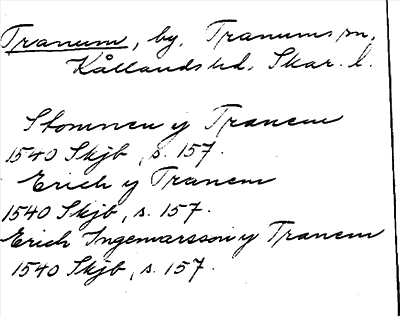 Tranum, by, Tranums sn,
Kållands hd, Skar. l.
Stomnen y Tranem
1540 Skjb, s. 157.
Erich y Tranem
1540 Skjb, s. 157.
Erich Ingemarsson y Tranem
1540 Skjb, s. 157.